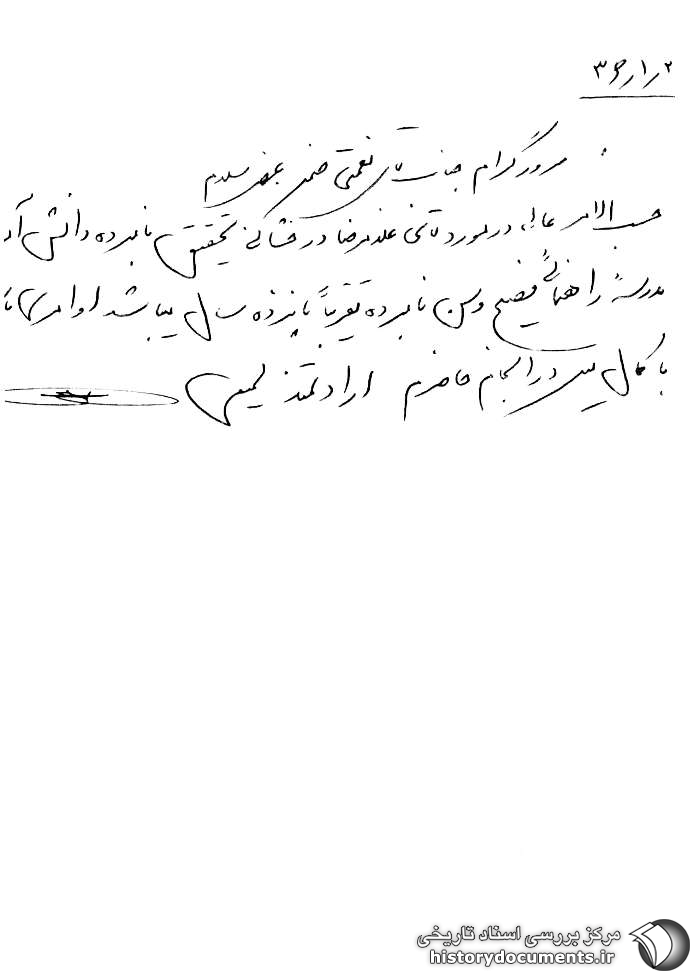 ۳۶ر۱ر۲
سرور گرام جناب آقای نعمتی ضمن عرض سلام
حسب الامر عالی در مورد آقای غلامرضا درخشانی تحقیق نامبرده دانش آ
مدرسهٔ راهنمائی فصیح و سن نامبرده تقریباً پانزده سال میباشد اوامری
با کمال میل در انجام حاضرم ارادتمند
مرکز بررسی اسناد تاریخی
historydocuments.ir